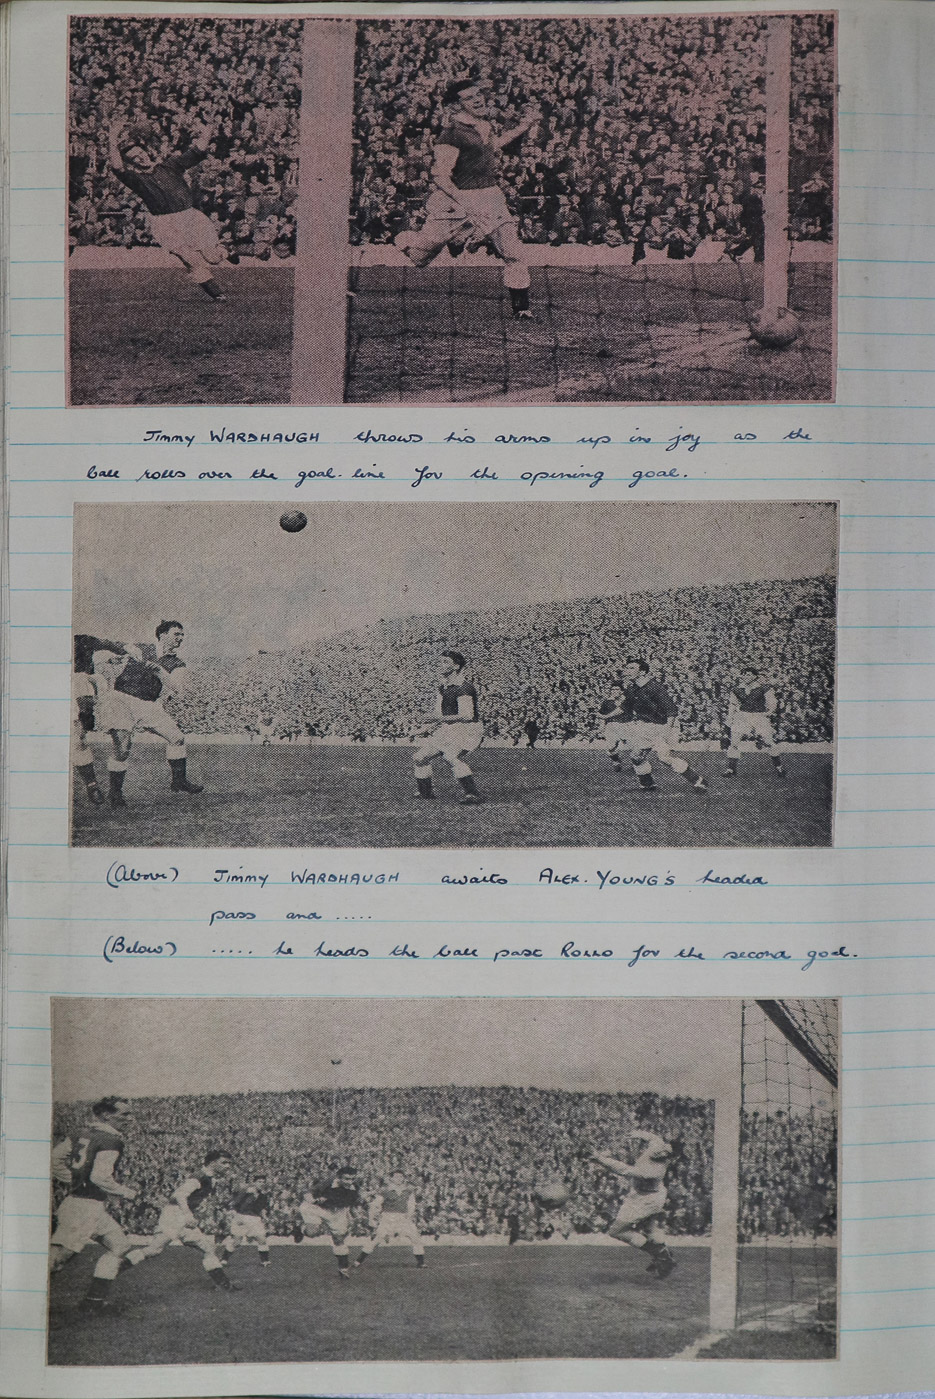 Jimmy WARDHAUGH throws his arms up in joy as the
ball rolls over the goal-line for the opening goal.
(Above) Jimmy WARDHAUGH awaits ALEX. YOUNG'S headed
pass and .....
(Below) ..... he heads the ball past ROLLO for the second goal.